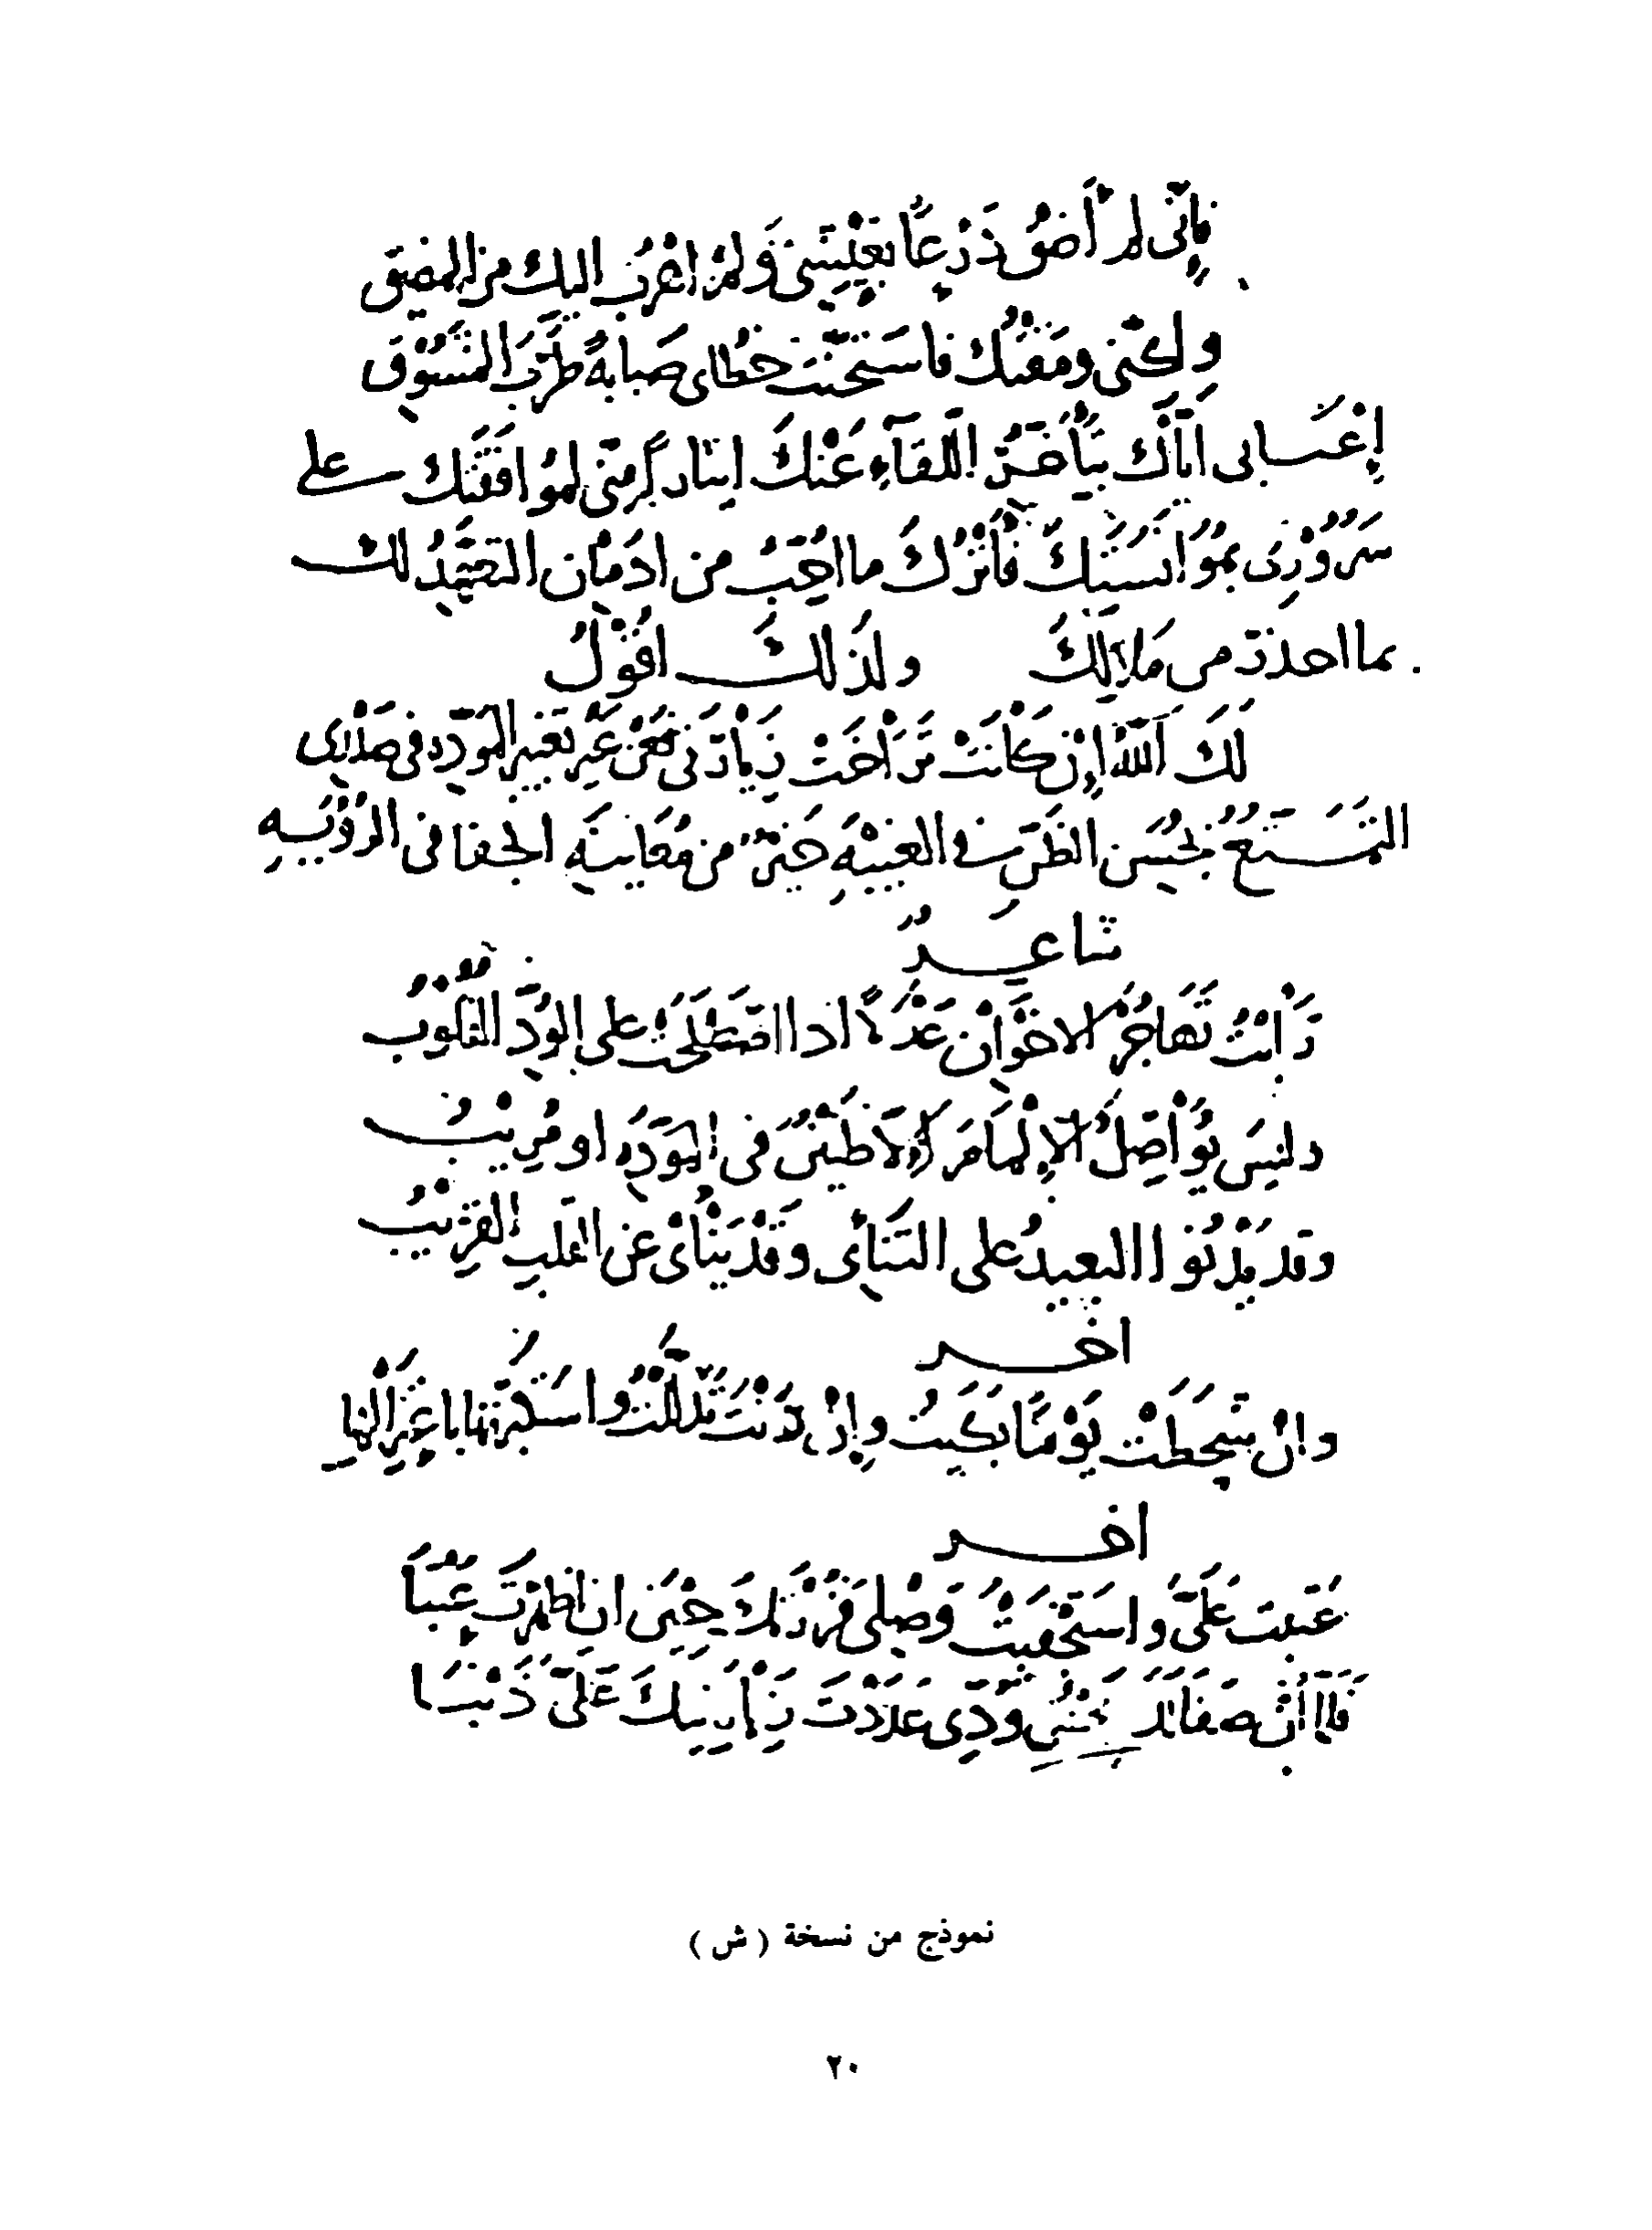 فَإِنّى لم أضِقْ ذَرْعًا بعَيْشى وَلَمْ اهْرُب اليك من المضيق
ولكنى ومقتك فاستحثّت خطاى صَبابةً طَرَبَ المَشُوْق
إغبَابى ايّاك بتَأَخّر اللقآءِ عَنْكَ ايثار مِنّى لمُوافَقَتك على
سُرُوْرِى بمُؤانَسَتِكَ فأتْرُكَ ما احِبُّ من ادمَان التعهّدُ لك
بما احذرهُ من مَلالِكَ ولذلكَ اقُوْلُ
لَكَ اللّهُ إِن كَانَتْ تَرَاخَتْ زِيَارَتى فَعَنْ غيْرِ تغيير المودّه فى صَدْرِى
التمَسّتعُ بحُسَن الظَنّ فى الغَيْبَهِ خَيْرٌ من مُعَايَنَهِ الجفا فى الرُؤْيَهِ
شاعِرٌ
رَأيْتُ تَهَاجُرَ الاخْوَانِ عَدْلاً اذا اصْطَلَحَتْ على الوُدِّ القُلُوْبُ
وليَس يُوَاصِلُ الإِلْمَامَ إِلاّ ظَنِيْنٌ فى الموَدّهِ او مُرِيْبُ
وقد يَدْنُو البعيدُ على التَنَائِى وقَدْ يَنْأى عَن القَلبِ القَرِيْبُ
اخر
وانْ سَخِطَتْ يَوْمًا بَكَيْتُ وإِنْ دَنَتْ تَذَلّلْتُ واسْتَكْبَرْتُها باعْتِزَالِهَا
اخر
عَتبتَ عَلَىَّ واسْتَخْفَيْتُ وَصْلى فَزُرْتُكَ حِيْنَ ان اظهَرْتَ عَتْبًا
فَلمّا أنْ صَفَا لَكَ وُدِّى عَدَدْتَ زِيَارَتيكَ عَلَىَّ ذَنْبَا
نموذج من نسخة ( ش )
٢٠